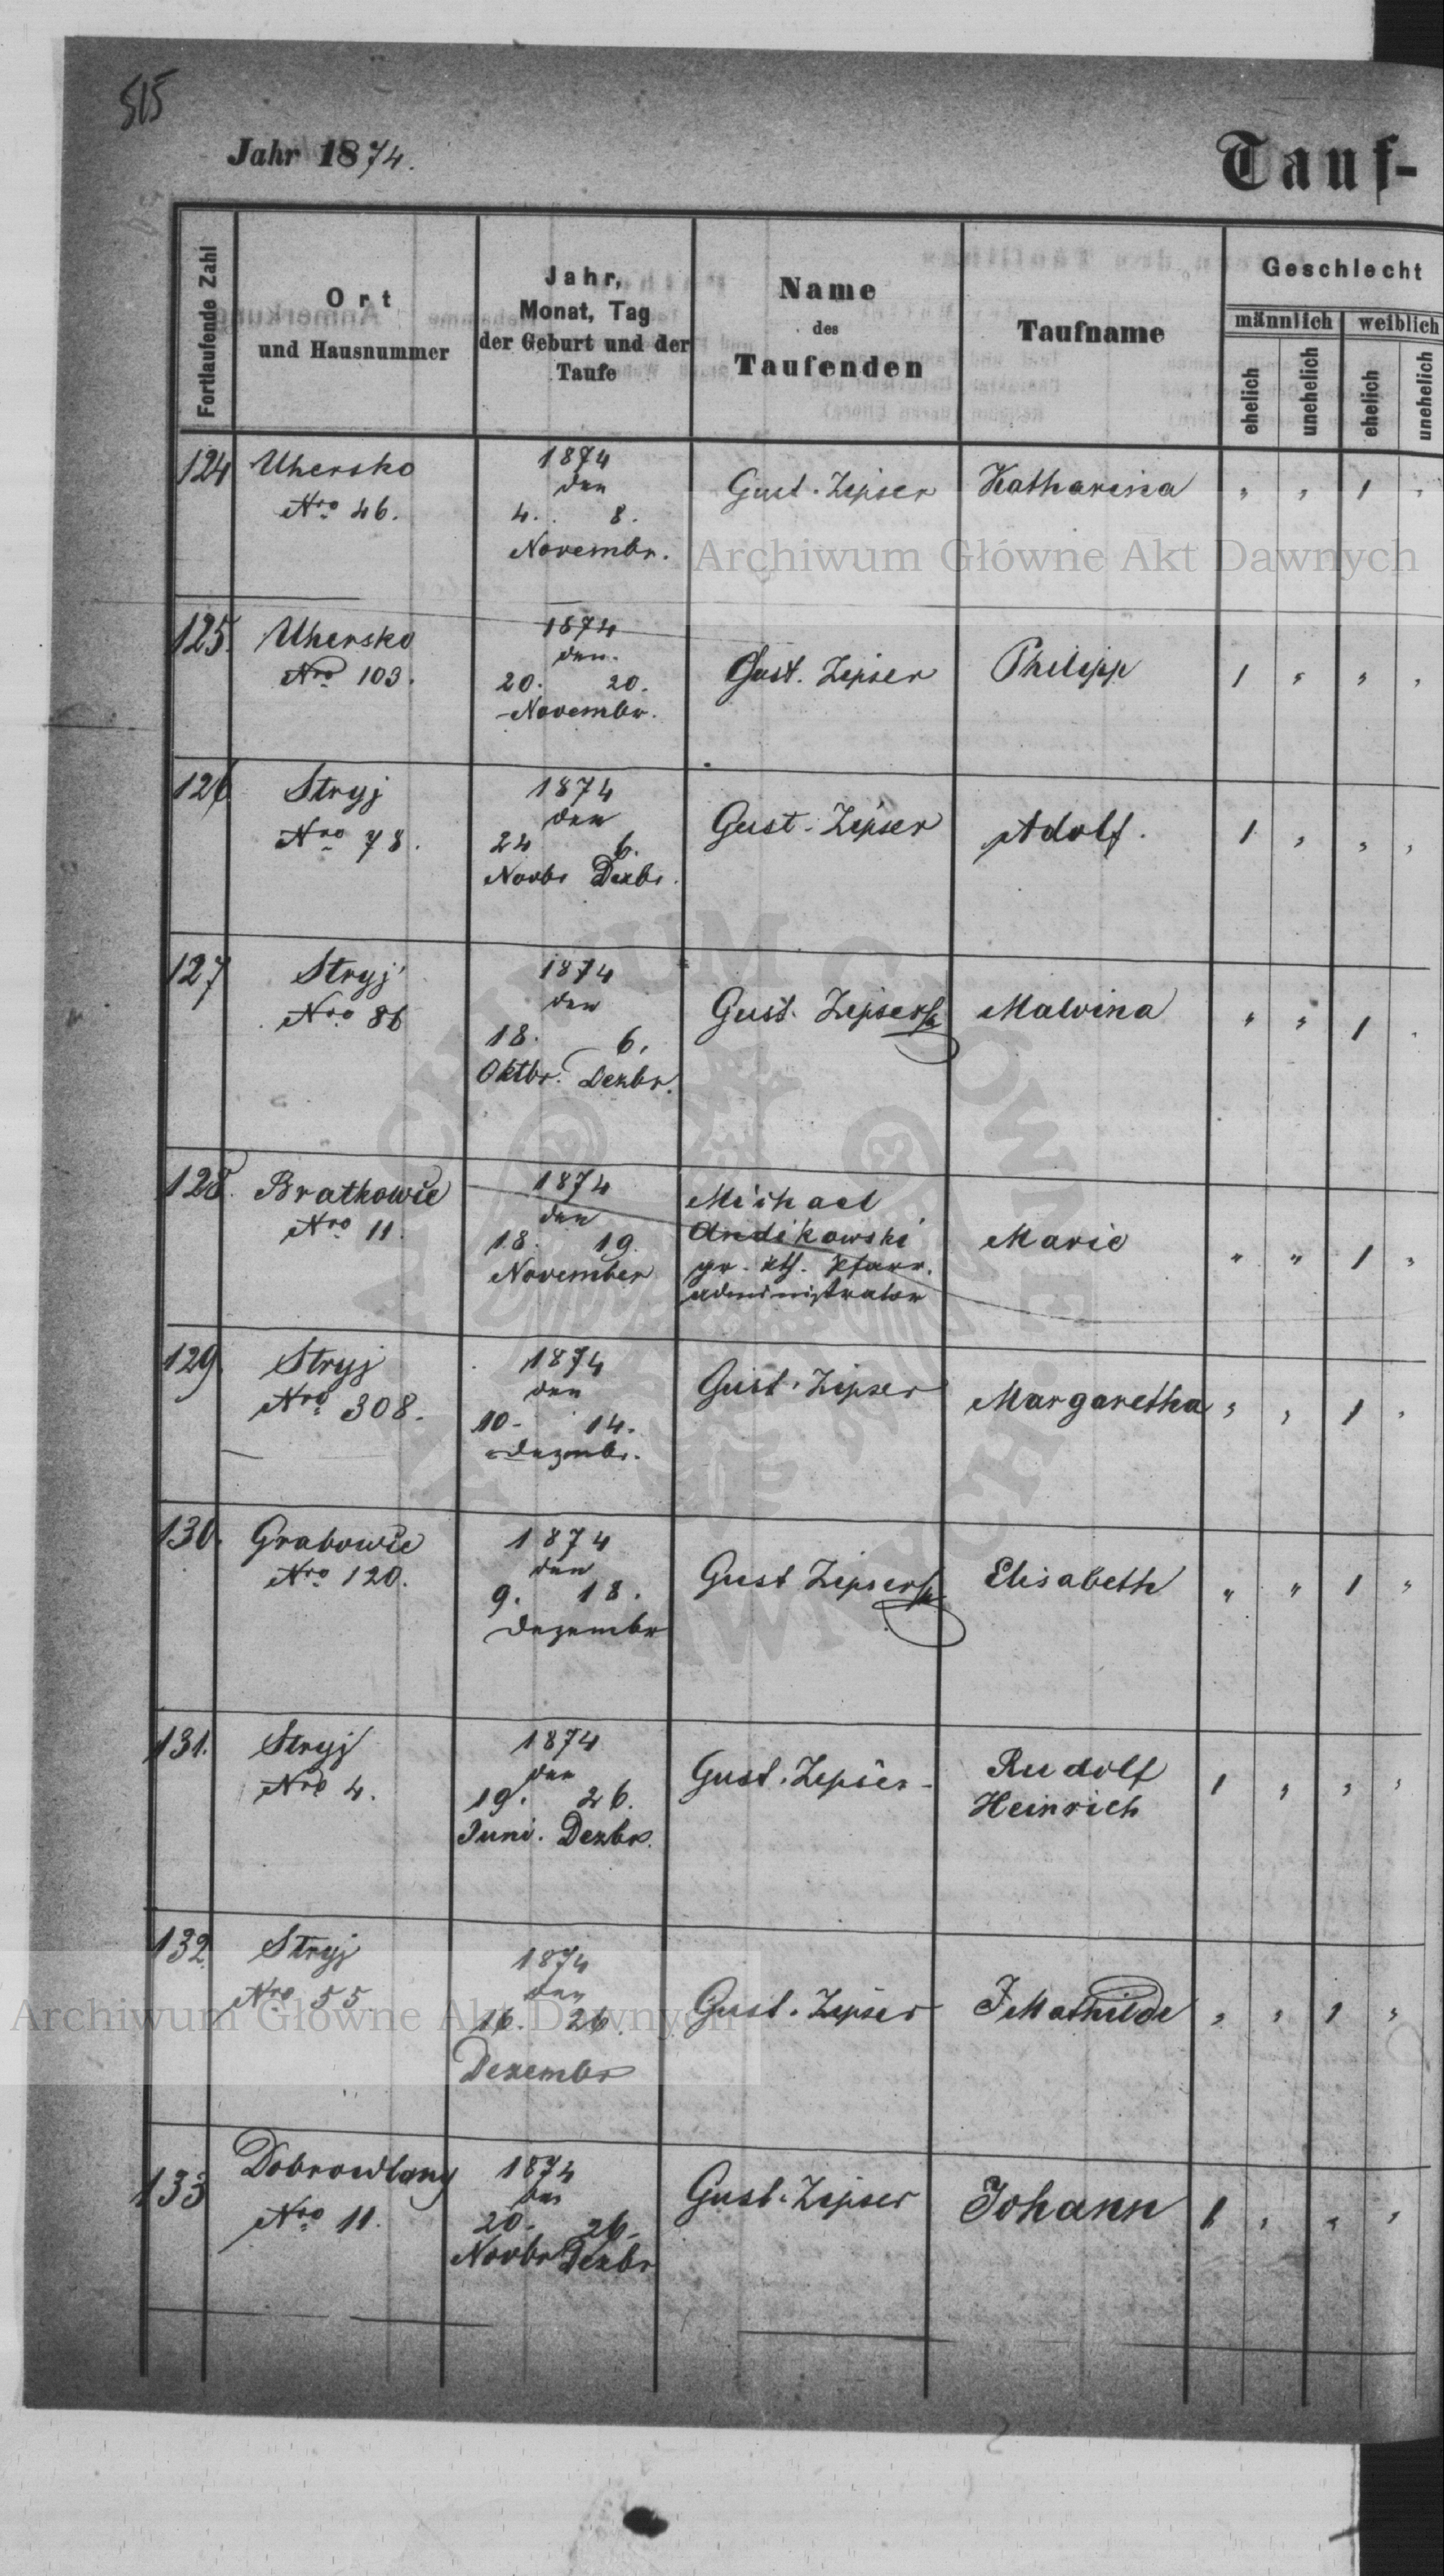 515
Jahr 1874.
Tauf-
Fortlaufende Zahl
Ort
und Hausnummer
Jahr,
Monat, Tag
der Geburt und der
Taufe
Name
des
Taufenden
Taufname
Geschlecht
männlich
weiblich
ehelich
unehelich
ehelich
unehelich
124
Uhersko
Nro 46.
1874
den
4. 8.
Novembr.
Gust. Zipser
Katharina
" " 1 "
Archiwum Główne Akt Dawnych
125.
Uhersko
Nro 103.
1874
den
20. 20.
Novembr.
Gust. Zipser
Philipp
1 " " "
126
Stryj
Nro 78.
1874
den
24 6.
Novbr Dezbr.
Gust. Zipser
Adolf.
1 " " "
127
Stryj
Nro 86
1874
den
18. 6.
Oktbr. Dezbr.
Gust. Zipser
Malvina
" " 1 "
128.
Bratkowie
Nro 11.
1874
den
18. 19.
November
Michael
Andikowski
gr. kth. Pfarr.
administrator
Marie
" " 1 "
129.
Stryj
Nro 308.
1874
den
10. 14.
Dezmbr.
Gust. Zipser
Margaretha
" " 1 "
130.
Grabowie
Nro 120.
1874
den
9. 18.
Dezembr
Gust Zipser
Elisabeth
" " 1 "
131.
Stryj
Nro 4.
1874
den
19. 26.
Juni. Dezbr.
Gust. Zipser
Rudolf
Heinrich
1 " " "
132.
Stryj
Nro 55
1874
den
16. 26.
Dezembr
Gust. Zipser
Mathilde
" " 1 "
Archiwum Główne Akt Dawnych
133
Dobrowlany
Nro 11.
1874
den
20. 26.
Novbr Dezbr
Gust. Zipser
Johann
1 " " "